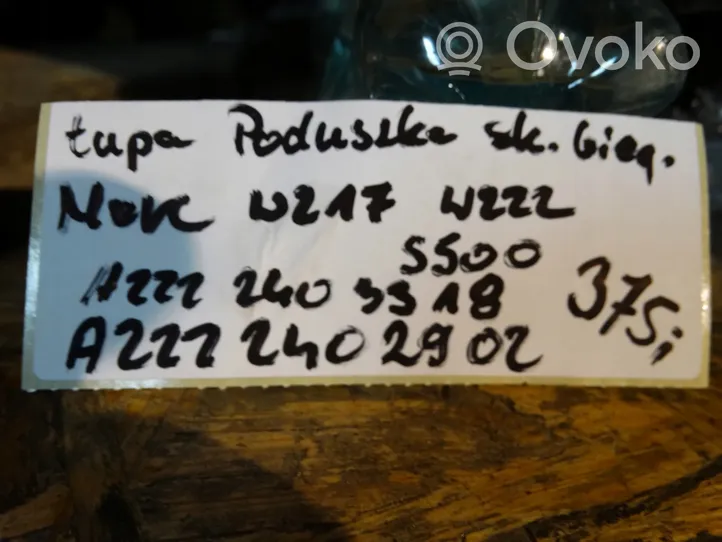 Ovoko
Łapa Poduszka sk. bieg.
Merc W217 W222
S500
A222 240 3318
375,-
A222 240 2902